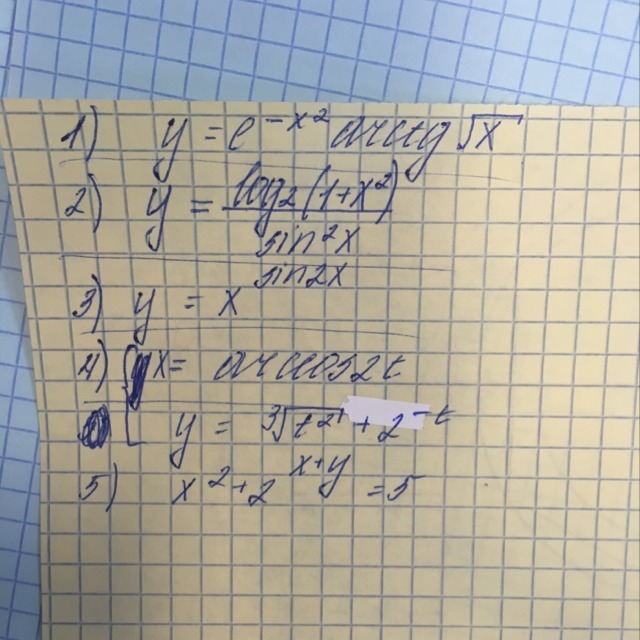 1) y = e^{-x^2} arcctg √x
2) y = log₂(1+x²) / sin²x
3) y = x^{sin2x}
4) { x = arccos2t
y = ³√t² + 2^{-t}
5) x² + 2^{x+y} = 5